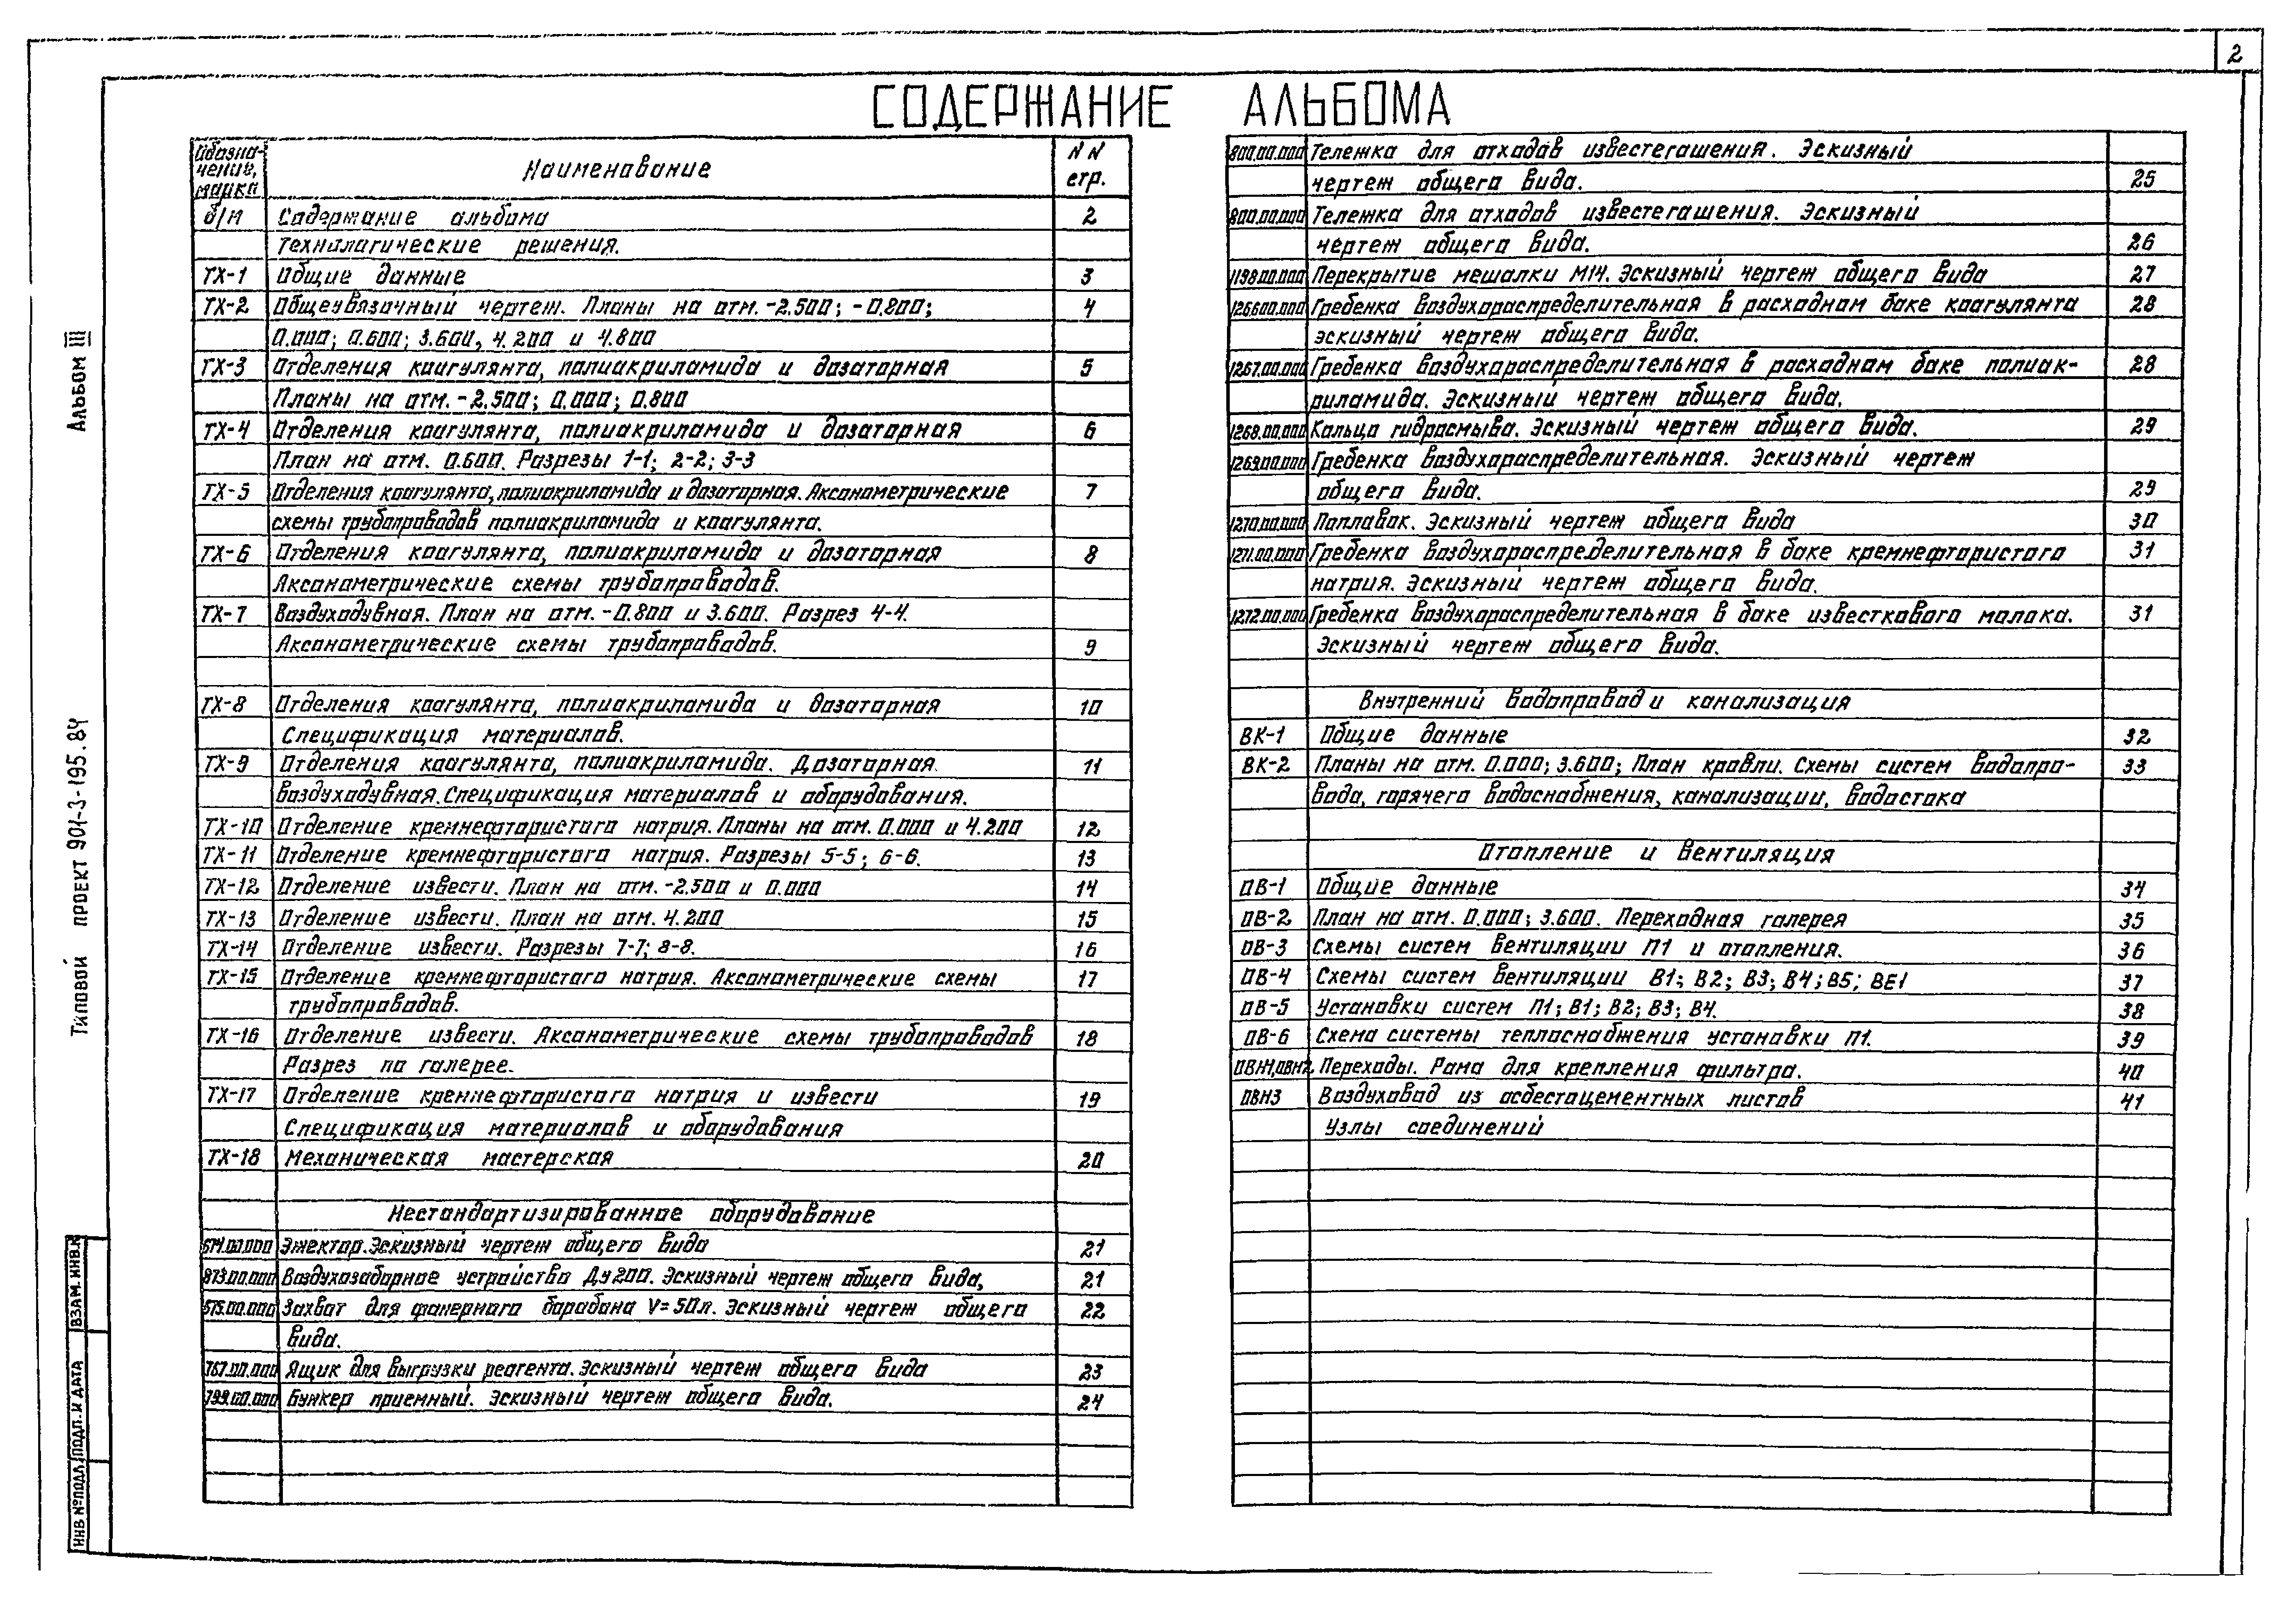 2
СОДЕРЖАНИЕ АЛЬБОМА
Обозна-
чение,
марка
Наименование
N N
стр.
б/н Содержание альбома 2
Технологические решения.
ТХ-1 Общие данные 3
ТХ-2 Общеувязочный чертеж. Планы на отм. -2.500; -0.800; 4
0.000; 0.600; 3.600, 4.200 и 4.800
ТХ-3 Отделения коагулянта, полиакриламида и дозаторная 5
Планы на отм. -2.500; 0.000; 0.800
ТХ-4 Отделения коагулянта, полиакриламида и дозаторная 6
План на отм. 0.600. Разрезы 1-1; 2-2; 3-3
ТХ-5 Отделения коагулянта, полиакриламида и дозаторная. Аксонометрические 7
схемы трубопроводов полиакриламида и коагулянта.
ТХ-6 Отделения коагулянта, полиакриламида и дозаторная 8
Аксонометрические схемы трубопроводов.
ТХ-7 Воздуходувная. План на отм. -0.800 и 3.600. Разрез 4-4.
Аксонометрические схемы трубопроводов. 9
ТХ-8 Отделения коагулянта, полиакриламида и дозаторная 10
Спецификация материалов.
ТХ-9 Отделения коагулянта, полиакриламида. Дозаторная. 11
Воздуходувная. Спецификация материалов и оборудования.
ТХ-10 Отделение кремнефтористого натрия. Планы на отм. 0.000 и 4.200 12
ТХ-11 Отделение кремнефтористого натрия. Разрезы 5-5; 6-6. 13
ТХ-12 Отделение извести. План на отм. -2.500 и 0.000 14
ТХ-13 Отделение извести. План на отм. 4.200 15
ТХ-14 Отделение извести. Разрезы 7-7; 8-8. 16
ТХ-15 Отделение кремнефтористого натрия. Аксонометрические схемы 17
трубопроводов.
ТХ-16 Отделение извести. Аксонометрические схемы трубопроводов 18
Разрез по галерее.
ТХ-17 Отделение кремнефтористого натрия и извести 19
Спецификация материалов и оборудования
ТХ-18 Механическая мастерская 20
Нестандартизированное оборудование
Эжектор. Эскизный чертеж общего вида 21
873.00.000 Воздухозаборное устройство Ду200. Эскизный чертеж общего вида, 21
575.00.000 Захват для фанерного барабана V=50л. Эскизный чертеж общего 22
вида.
767.00.000 Ящик для выгрузки реагента. Эскизный чертеж общего вида 23
799.00.000 Бункер приемный. Эскизный чертеж общего вида. 24
800.00.000 Тележка для отходов известегашения. Эскизный
чертеж общего вида. 25
800.00.000 Тележка для отходов известегашения. Эскизный
чертеж общего вида. 26
1198.00.000 Перекрытие мешалки М14. Эскизный чертеж общего вида 27
1266.00.000 Гребенка воздухораспределительная в расходном баке коагулянта 28
эскизный чертеж общего вида.
1267.00.000 Гребенка воздухораспределительная в расходном баке полиак- 28
риламида. Эскизный чертеж общего вида.
1268.00.000 Кольцо гидросмыва. Эскизный чертеж общего вида. 29
1269.00.000 Гребенка воздухораспределительная. Эскизный чертеж
общего вида. 29
1270.00.000 Поплавок. Эскизный чертеж общего вида 30
1271.00.000 Гребенка воздухораспределительная в баке кремнефтористого 31
натрия. Эскизный чертеж общего вида.
1272.00.000 Гребенка воздухораспределительная в баке известкового молока. 31
Эскизный чертеж общего вида.
Внутренний водопровод и канализация
ВК-1 Общие данные 32
ВК-2 Планы на отм. 0.000; 3.600; План кровли. Схемы систем водопро- 33
вода, горячего водоснабжения, канализации, водостока
Отопление и вентиляция
ОВ-1 Общие данные 34
ОВ-2 План на отм. 0.000; 3.600. Переходная галерея 35
ОВ-3 Схемы систем вентиляции П1 и отопления. 36
ОВ-4 Схемы систем вентиляции В1; В2; В3; В4; В5; ВЕ1 37
ОВ-5 Установки систем П1; В1; В2; В3; В4. 38
ОВ-6 Схема системы теплоснабжения установки П1. 39
ОВН1, ОВН2 Переходы. Рама для крепления фильтра. 40
ОВН3 Воздуховод из асбестоцементных листов 41
Узлы соединений
Альбом III
Типовой проект 901-3-195.84
ВЗАМ. ИНВ.N
ПОДП. И ДАТА
ИНВ №ПОДЛ.